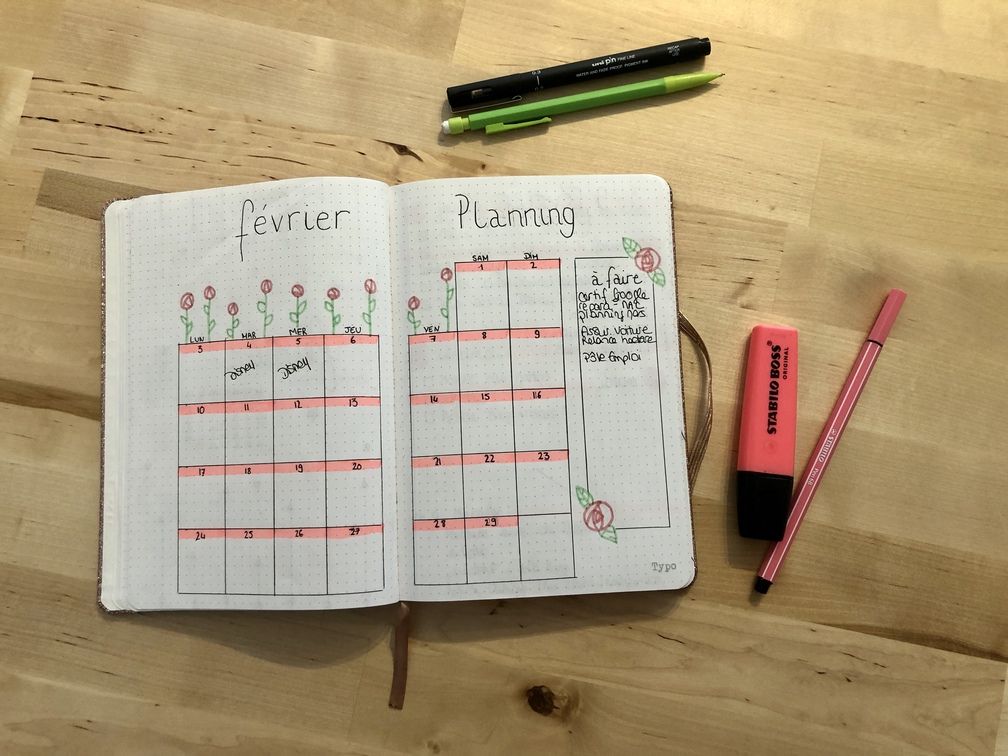 uni pin FINE LINE
WATER AND FADE PROOF, PIGMENT INK
0.3
février
Planning
SAM DIM
1 2
à faire
certif Google
planning nos
Assur. Voiture
Relance
Pôle Emploi
LUN MAR MER JEU VEN
3 4 5 6 7 8 9
Disney Disney
10 11 12 13 14 15 16
17 18 19 20 21 22 23
24 25 26 27 28 29
Typo
STABILO BOSS
ORIGINAL
STABILO